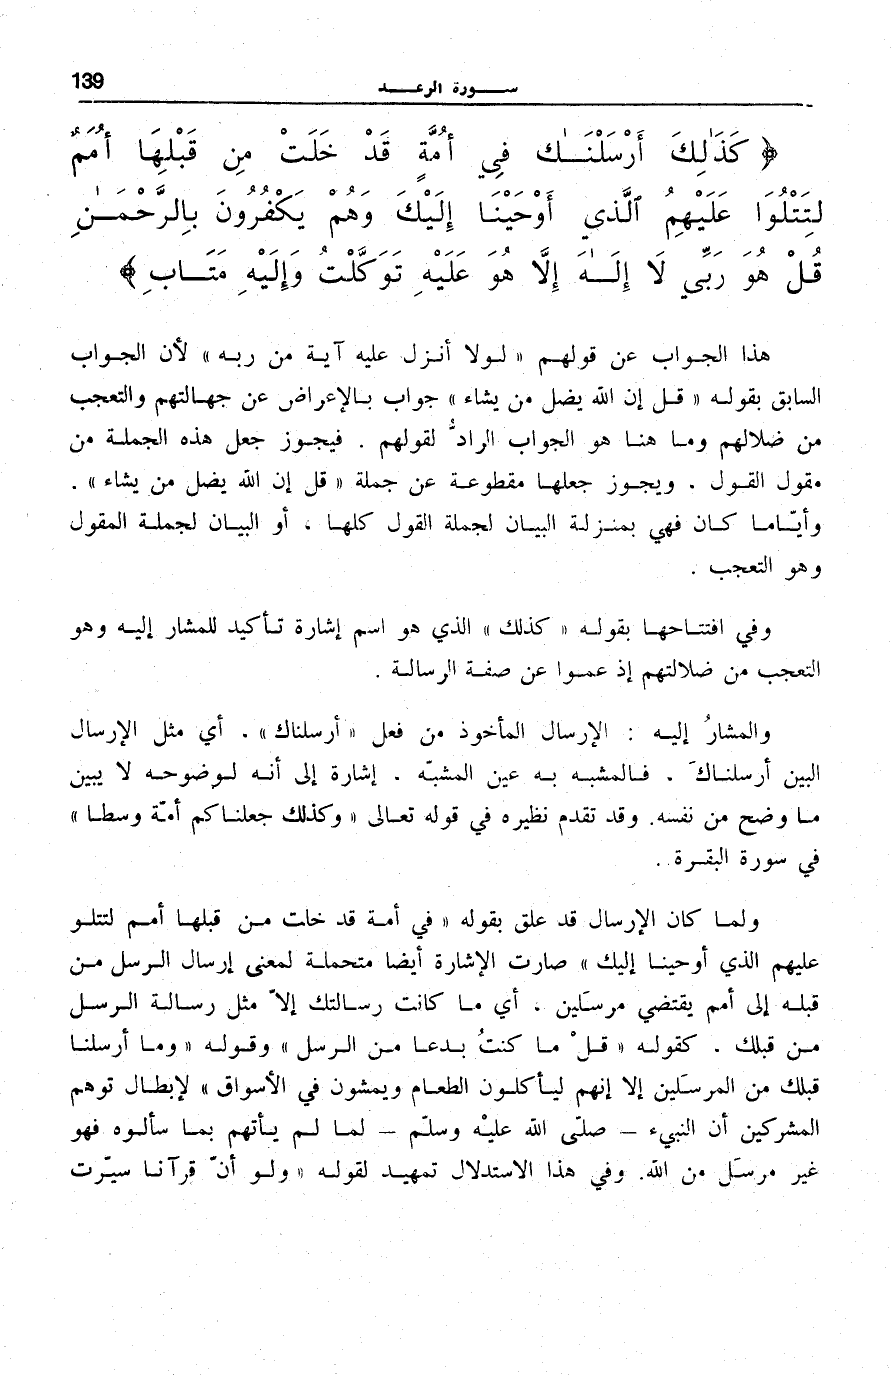 139
سورة الرعد
﴿ كَذَٰلِكَ أَرْسَلْنَـٰكَ فِي أُمَّةٍ قَدْ خَلَتْ مِن قَبْلِهَا أُمَمٌ
لِتَتْلُوَا عَلَيْهِمُ ٱلَّذِي أَوْحَيْنَا إِلَيْكَ وَهُمْ يَكْفُرُونَ بِالرَّحْمَـٰنِ
قُلْ هُوَ رَبِّي لَا إِلَـٰهَ إِلَّا هُوَ عَلَيْهِ تَوَكَّلْتُ وَإِلَيْهِ مَتَابِ ﴾
هذا الجواب عن قولهم « لولا أنزل عليه آية من ربه » لأن الجواب
السابق بقوله « قل إن الله يضل من يشاء » جواب بالإعراض عن جهالتهم والتعجب
من ضلالهم وما هنا هو الجواب الرادُّ لقولهم . فيجوز جعل هذه الجملة من
مقول القول . ويجوز جعلها مقطوعة عن جملة « قل إن الله يضل من يشاء » .
وأيّاما كان فهي بمنزلة البيان لجملة القول كلها ، أو البيان لجملة المقول
وهو التعجب .
وفي افتتاحها بقوله « كذلك » الذي هو اسم إشارة تأكيد للمشار إليه وهو
التعجب من ضلالتهم إذ عموا عن صفة الرسالة .
والمشارُ إليه : الإرسال المأخوذ من فعل « أرسلناك » . أي مثل الإرسال
البين أرسلناكَ . فالمشبه به عين المشبّه . إشارة إلى أنه لوضوحه لا يبين
ما وضح من نفسه. وقد تقدم نظيره في قوله تعالى « وكذلك جعلناكم أمّة وسطا »
في سورة البقرة .
ولما كان الإرسال قد علق بقوله « في أمة قد خلت من قبلها أمم لتتلو
عليهم الذي أوحينا إليك » صارت الإشارة أيضا متحملة لمعنى إرسال الرسل من
قبله إلى أمم يقتضي مرسَلين . أي ما كانت رسالتك إلاّ مثل رسالة الرسل
من قبلك . كقوله « قلْ ما كنتُ بدعا من الرسل » وقوله « وما أرسلنا
قبلك من المرسَلين إلا إنهم ليأكلون الطعام ويمشون في الأسواق » لإبطال توهم
المشركين أن النبيء – صلّى الله عليْه وسلّم – لما لم يأتهم بما سألوه فهو
غير مرسَل من الله. وفي هذا الاستدلال تمهيد لقوله « ولو أنّ قرآنا سيّرت